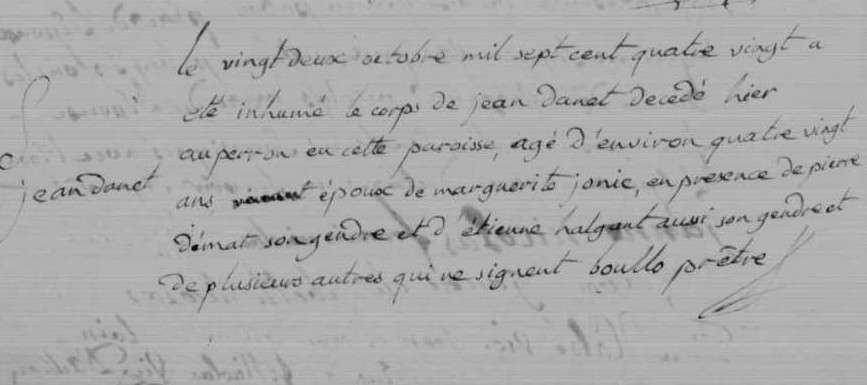 le vingt deux octobre mil sept cent quatre vingt a
eté inhumé le corps de jean danet decedé hier
au perron en cette paroisse, agé d'environ quatre vingt
jean danet
ans époux de marguerite jonic, en presence de pierre
démat son gendre et d'étienne halgant aussi son gendre et
de plusieurs autres qui ne signent boullo prêtre